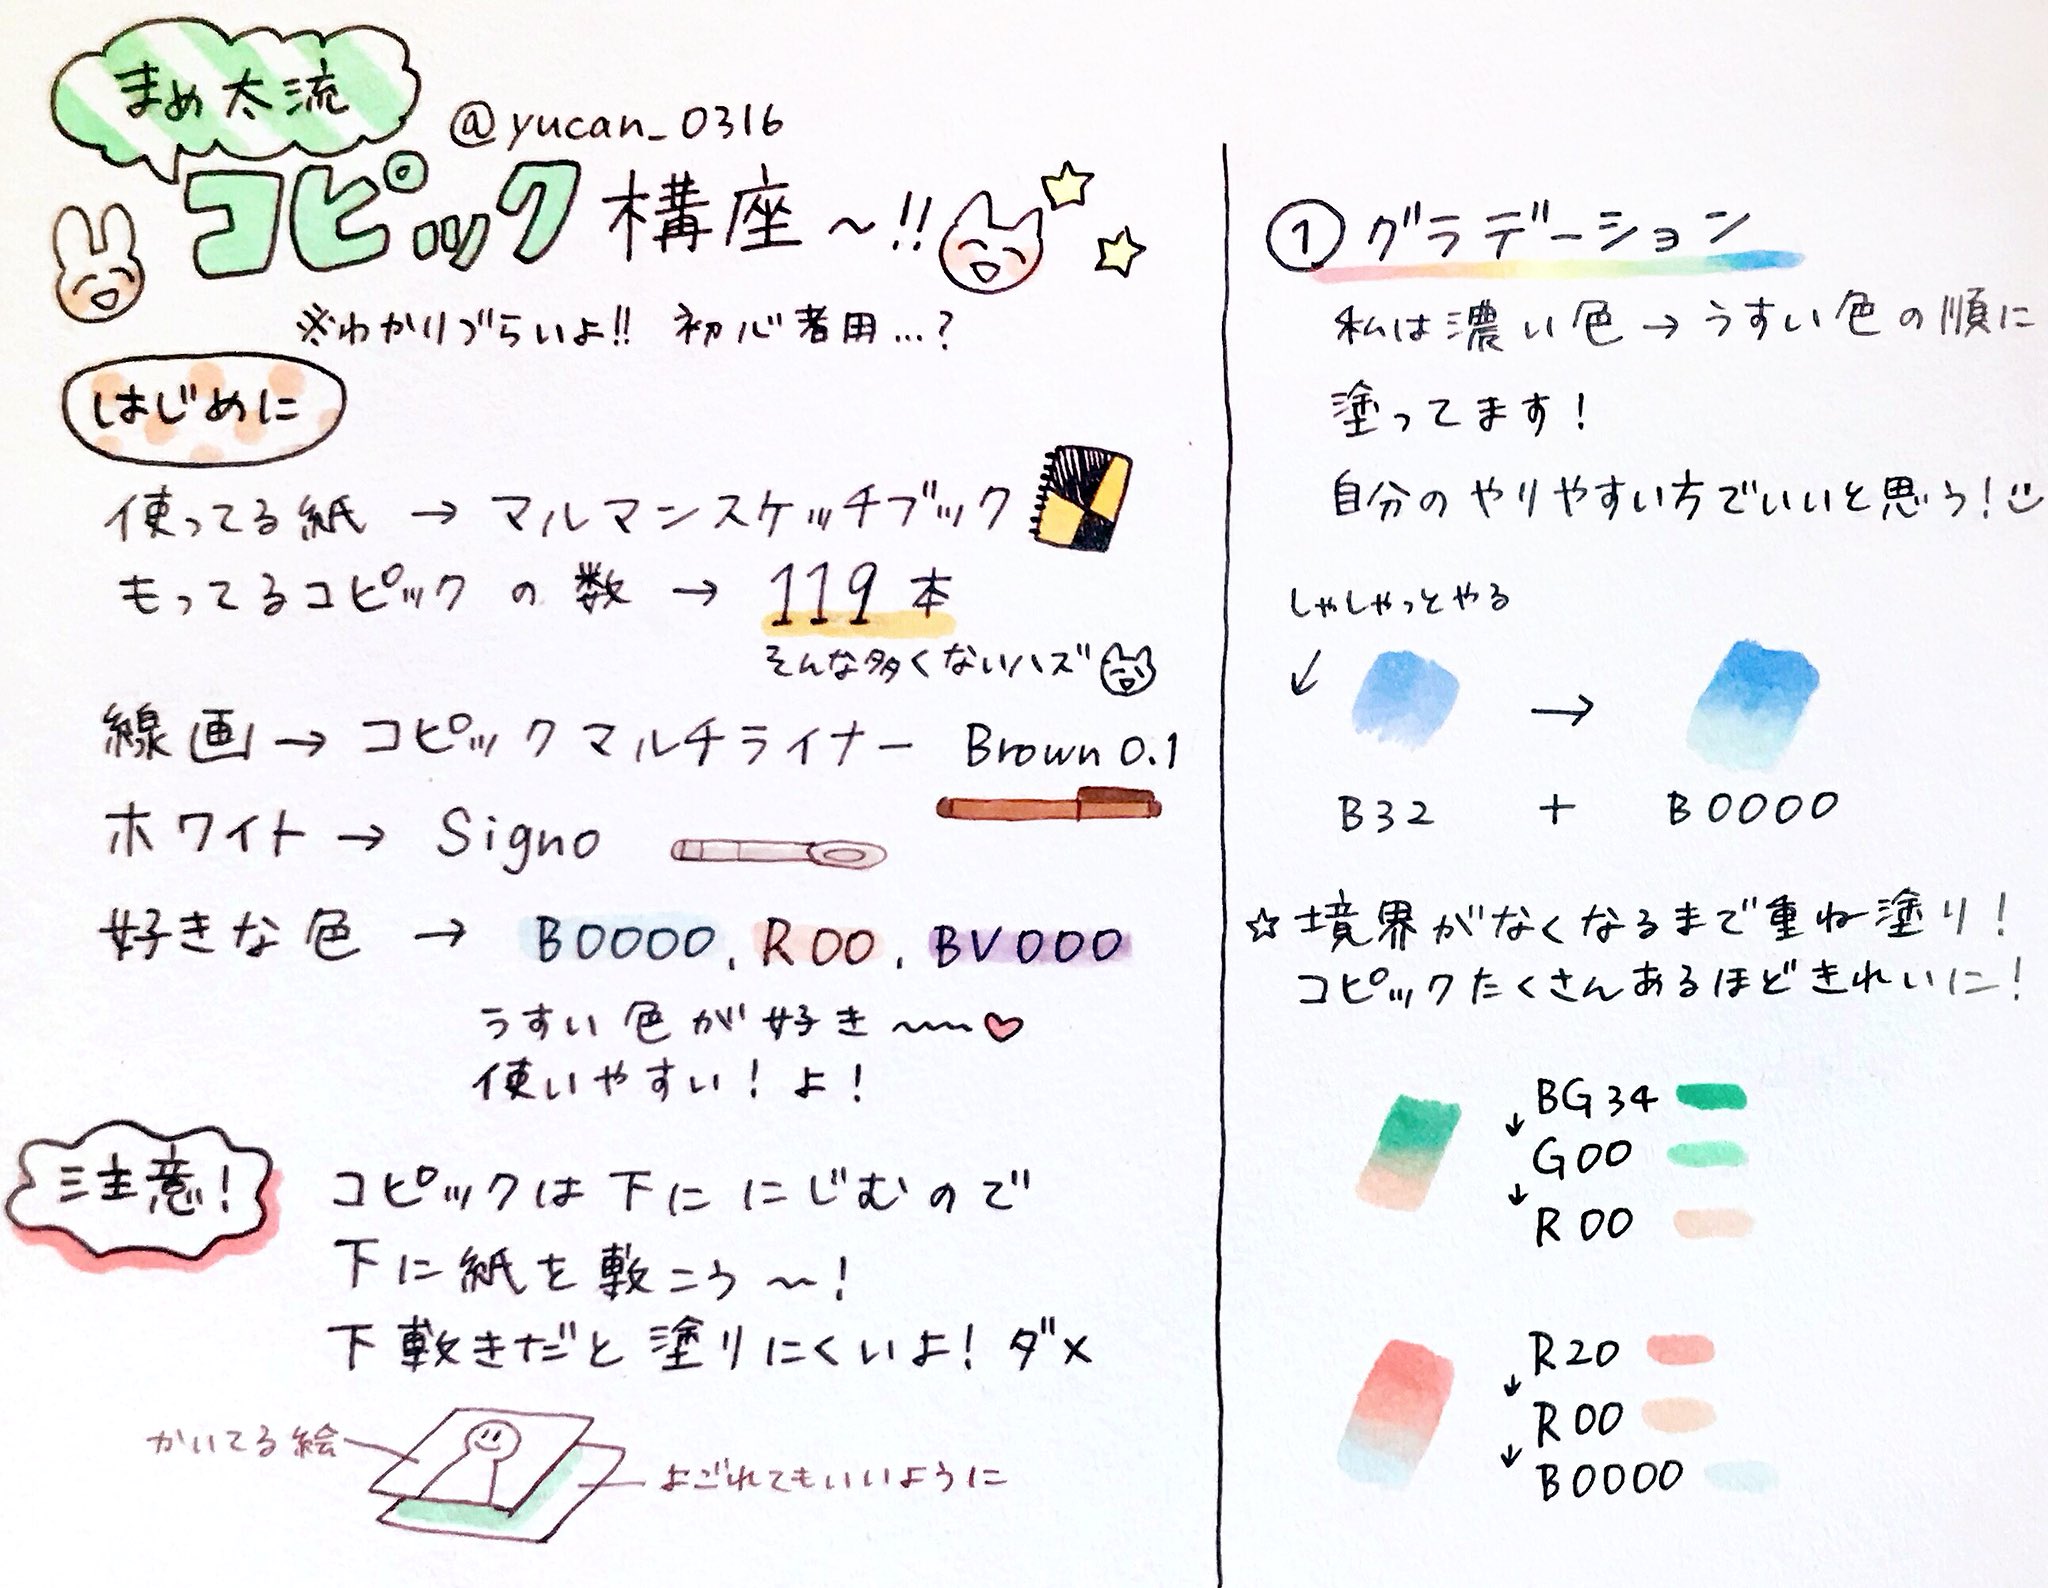 まめ太流
@yucan_0316
コピック講座〜!!
※わかりづらいよ!! 初心者用…?
はじめに
使ってる紙 → マルマンスケッチブック
もってるコピックの数 → 119本
そんな多くないハズ
線画 → コピックマルチライナー Brown 0.1
ホワイト → Signo
好きな色 → B0000, R00, BV000
うすい色が好き〜〜♡
使いやすい!よ!
注意!
コピックは下ににじむので
下に紙を敷こう〜!
下敷きだと塗りにくいよ!ダメ
かいてる絵
よごれてもいいように
① グラデーション
私は濃い色→うすい色の順に
塗ってます!
自分のやりやすい方でいいと思う!
しゃしゃっとやる
↓
→
B32 + B0000
☆境界がなくなるまで重ね塗り!
コピックたくさんあるほどきれいに!
BG34
↓
G00
↓
R00
R20
↓
R00
↓
B0000